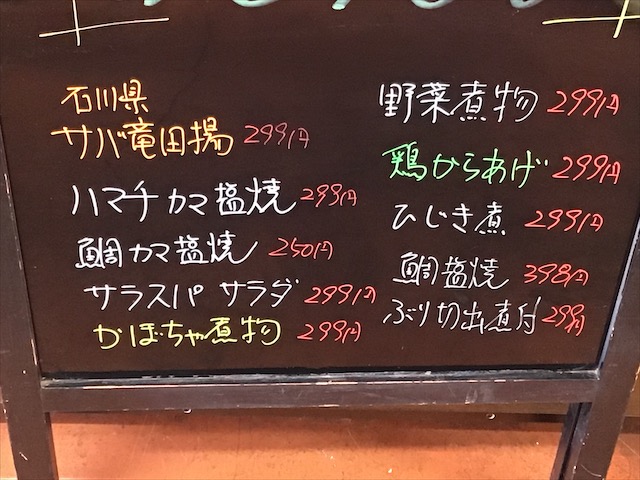 石川県
サバ竜田揚 299円
ハマチカマ塩焼 299円
鯛カマ塩焼 250円
サラスパサラダ 299円
かぼちゃ煮物 299円
野菜煮物 299円
鶏からあげ 299円
ひじき煮 299円
鯛塩焼 398円
ぶり切出煮付 299円